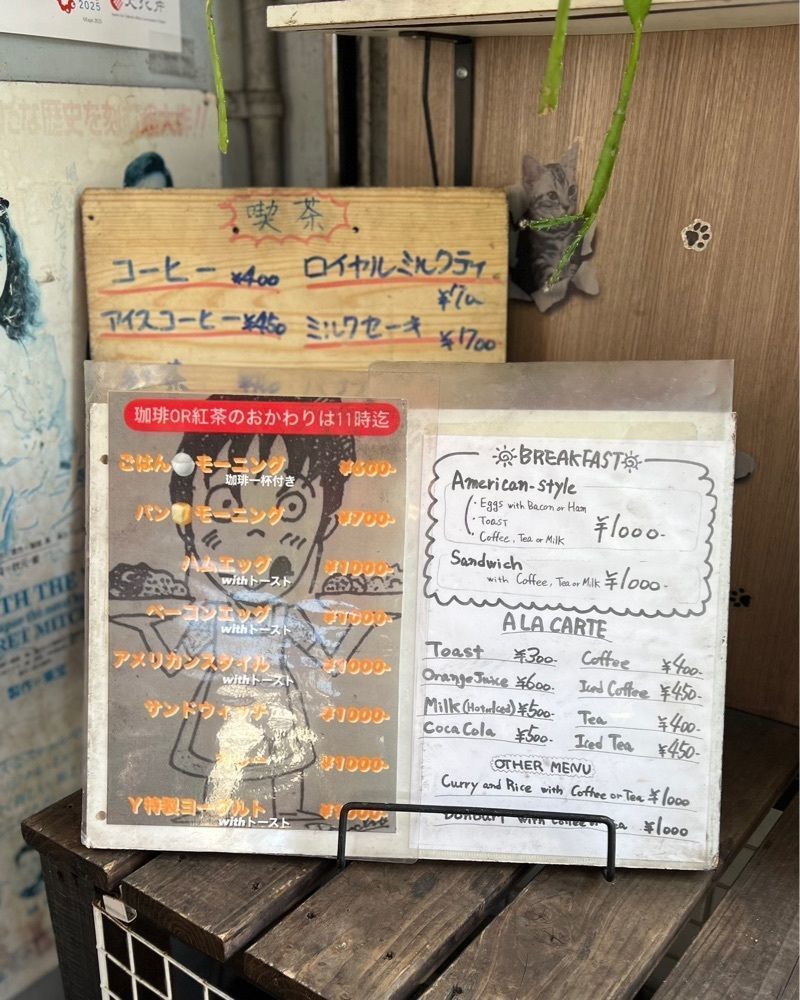 2025
喫茶
コーヒー ¥400
ロイヤルミルクティ
アイスコーヒー ¥450
ミルクセーキ ¥700
珈琲OR紅茶のおかわりは11時迄
ごはん モーニング ¥600-
珈琲一杯付き
パン モーニング ¥700-
ハムエッグ ¥1000-
withトースト
ベーコンエッグ ¥1000-
withトースト
アメリカンスタイル ¥1000-
withトースト
サンドウィッチ ¥1000-
¥1000-
Y特製ヨーグルト
withトースト
BREAKFAST
American-style
・Eggs with Bacon or Ham
・Toast
Coffee, Tea or Milk
¥1000-
Sandwich
with Coffee, Tea or Milk ¥1000-
A LA CARTE
Toast ¥300-
Orange Juice ¥600-
Milk (Hot or Iced) ¥500-
Coca Cola ¥500-
Coffee ¥400-
Iced Coffee ¥450-
Tea ¥400-
Iced Tea ¥450-
OTHER MENU
Curry and Rice with Coffee or Tea ¥1000
Donburi with Coffee or Tea ¥1000